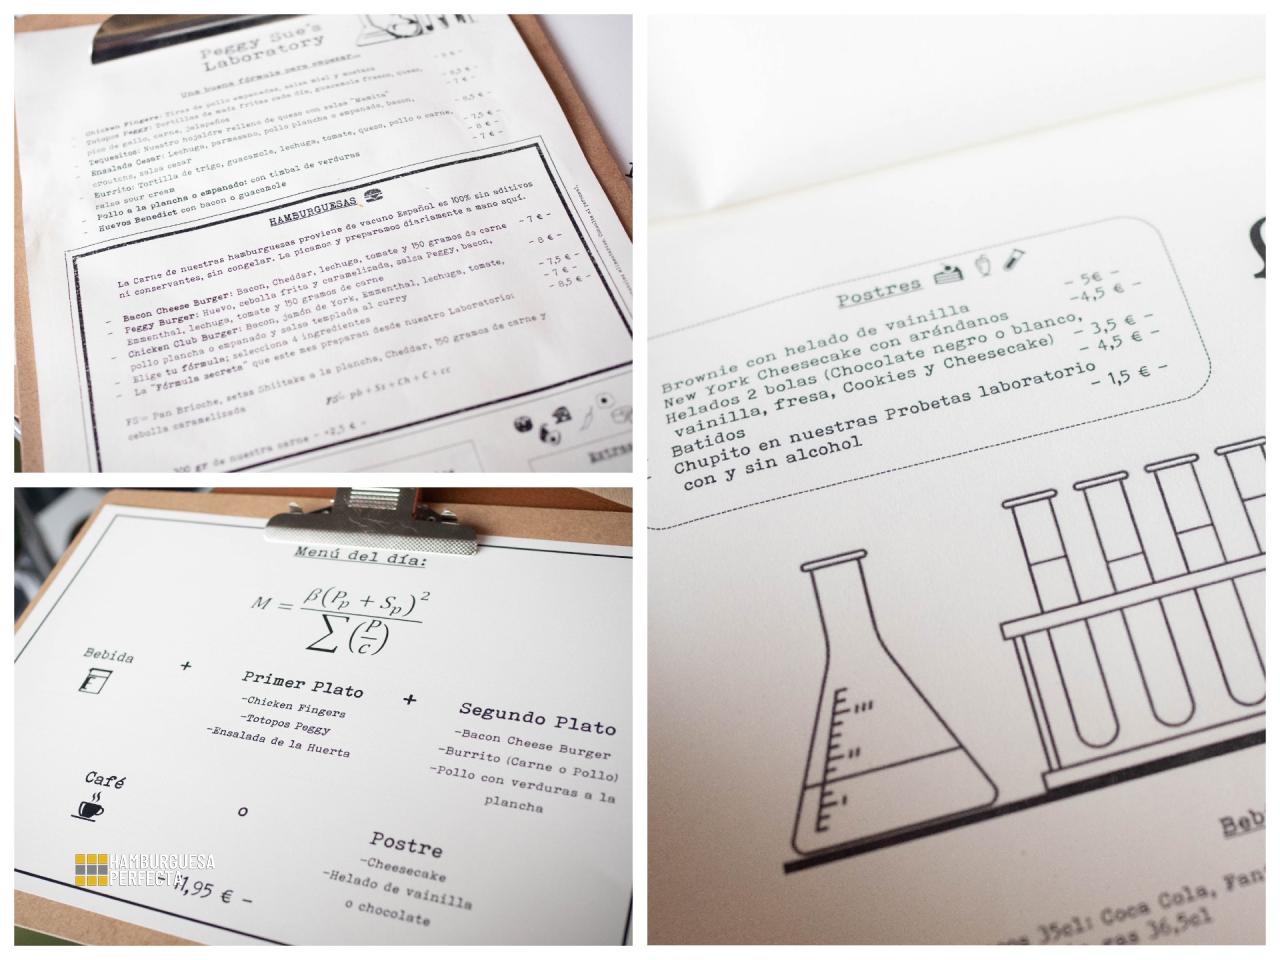 Peggy Sue's
Laboratory
Una buena fórmula para empezar...
- Chicken Fingers: Tiras de pollo empanadas, salsa miel y mostaza
- Totopos Peggy: Tortillas de maíz fritas cada día, guacamole fresco, queso,
pico de gallo, carne, jalapeños
- Tequesitos: Nuestro hojaldre relleno de queso con salsa "Mamita"
- Ensalada Cesar: Lechuga, parmesano, pollo plancha o empanado, bacon,
croutons, salsa cesar
- Burrito: Tortilla de trigo, guacamole, lechuga, tomate, queso, pollo o carne,
salsa sour cream
- Pollo a la plancha o empanado: con timbal de verduras
- Huevos Benedict con bacon o guacamole
HAMBURGUESAS
La Carne de nuestras hamburguesas proviene de vacuno Español es 100% sin aditivos
ni conservantes, sin congelar. La picamos y preparamos diariamente a mano aquí.
- Bacon Cheese Burger: Bacon, Cheddar, lechuga, tomate y 150 gramos de carne - 7 € -
- Peggy Burger: Huevo, cebolla frita y caramelizada, salsa Peggy, bacon, - 8 € -
Emmenthal, lechuga, tomate y 150 gramos de carne
- Chicken Club Burger: Bacon, jamón de York, Emmenthal, lechuga, tomate, - 7,5 € -
pollo plancha o empanado y salsa templada al curry
- Elige tu fórmula; selecciona 4 ingredientes - 7 € -
- La "Fórmula secreta" que este mes preparan desde nuestro Laboratorio: - 8,5 € -
FS= pb + Sz + Ch + C + cc
FS= Pan Brioche, setas Shiitake a la plancha, Cheddar, 150 gramos de carne y
cebolla caramelizada
300 gr de nuestra carne - +2,5 € -
Extras
Menú del día:
M = β(Pp + Sp)² / ∑(P/c)
Bebida + Primer Plato + Segundo Plato
-Chicken Fingers
-Totopos Peggy
-Ensalada de la Huerta
-Bacon Cheese Burger
-Burrito (Carne o Pollo)
-Pollo con verduras a la
plancha
Café o Postre
-Cheesecake
-Helado de vainilla
o chocolate
- 11,95 € -
HAMBURGUESA
PERFECTA
Postres
Brownie con helado de vainilla - 5€ -
New York Cheesecake con arándanos -4,5 € -
Helados 2 bolas (Chocolate negro o blanco, - 3,5 € -
vainilla, fresa, Cookies y Cheesecake)
Batidos - 4,5 € -
Chupito en nuestras Probetas laboratorio - 1,5 € -
con y sin alcohol
Beb
35cl: Coca Cola, Fan
gas 36,5cl